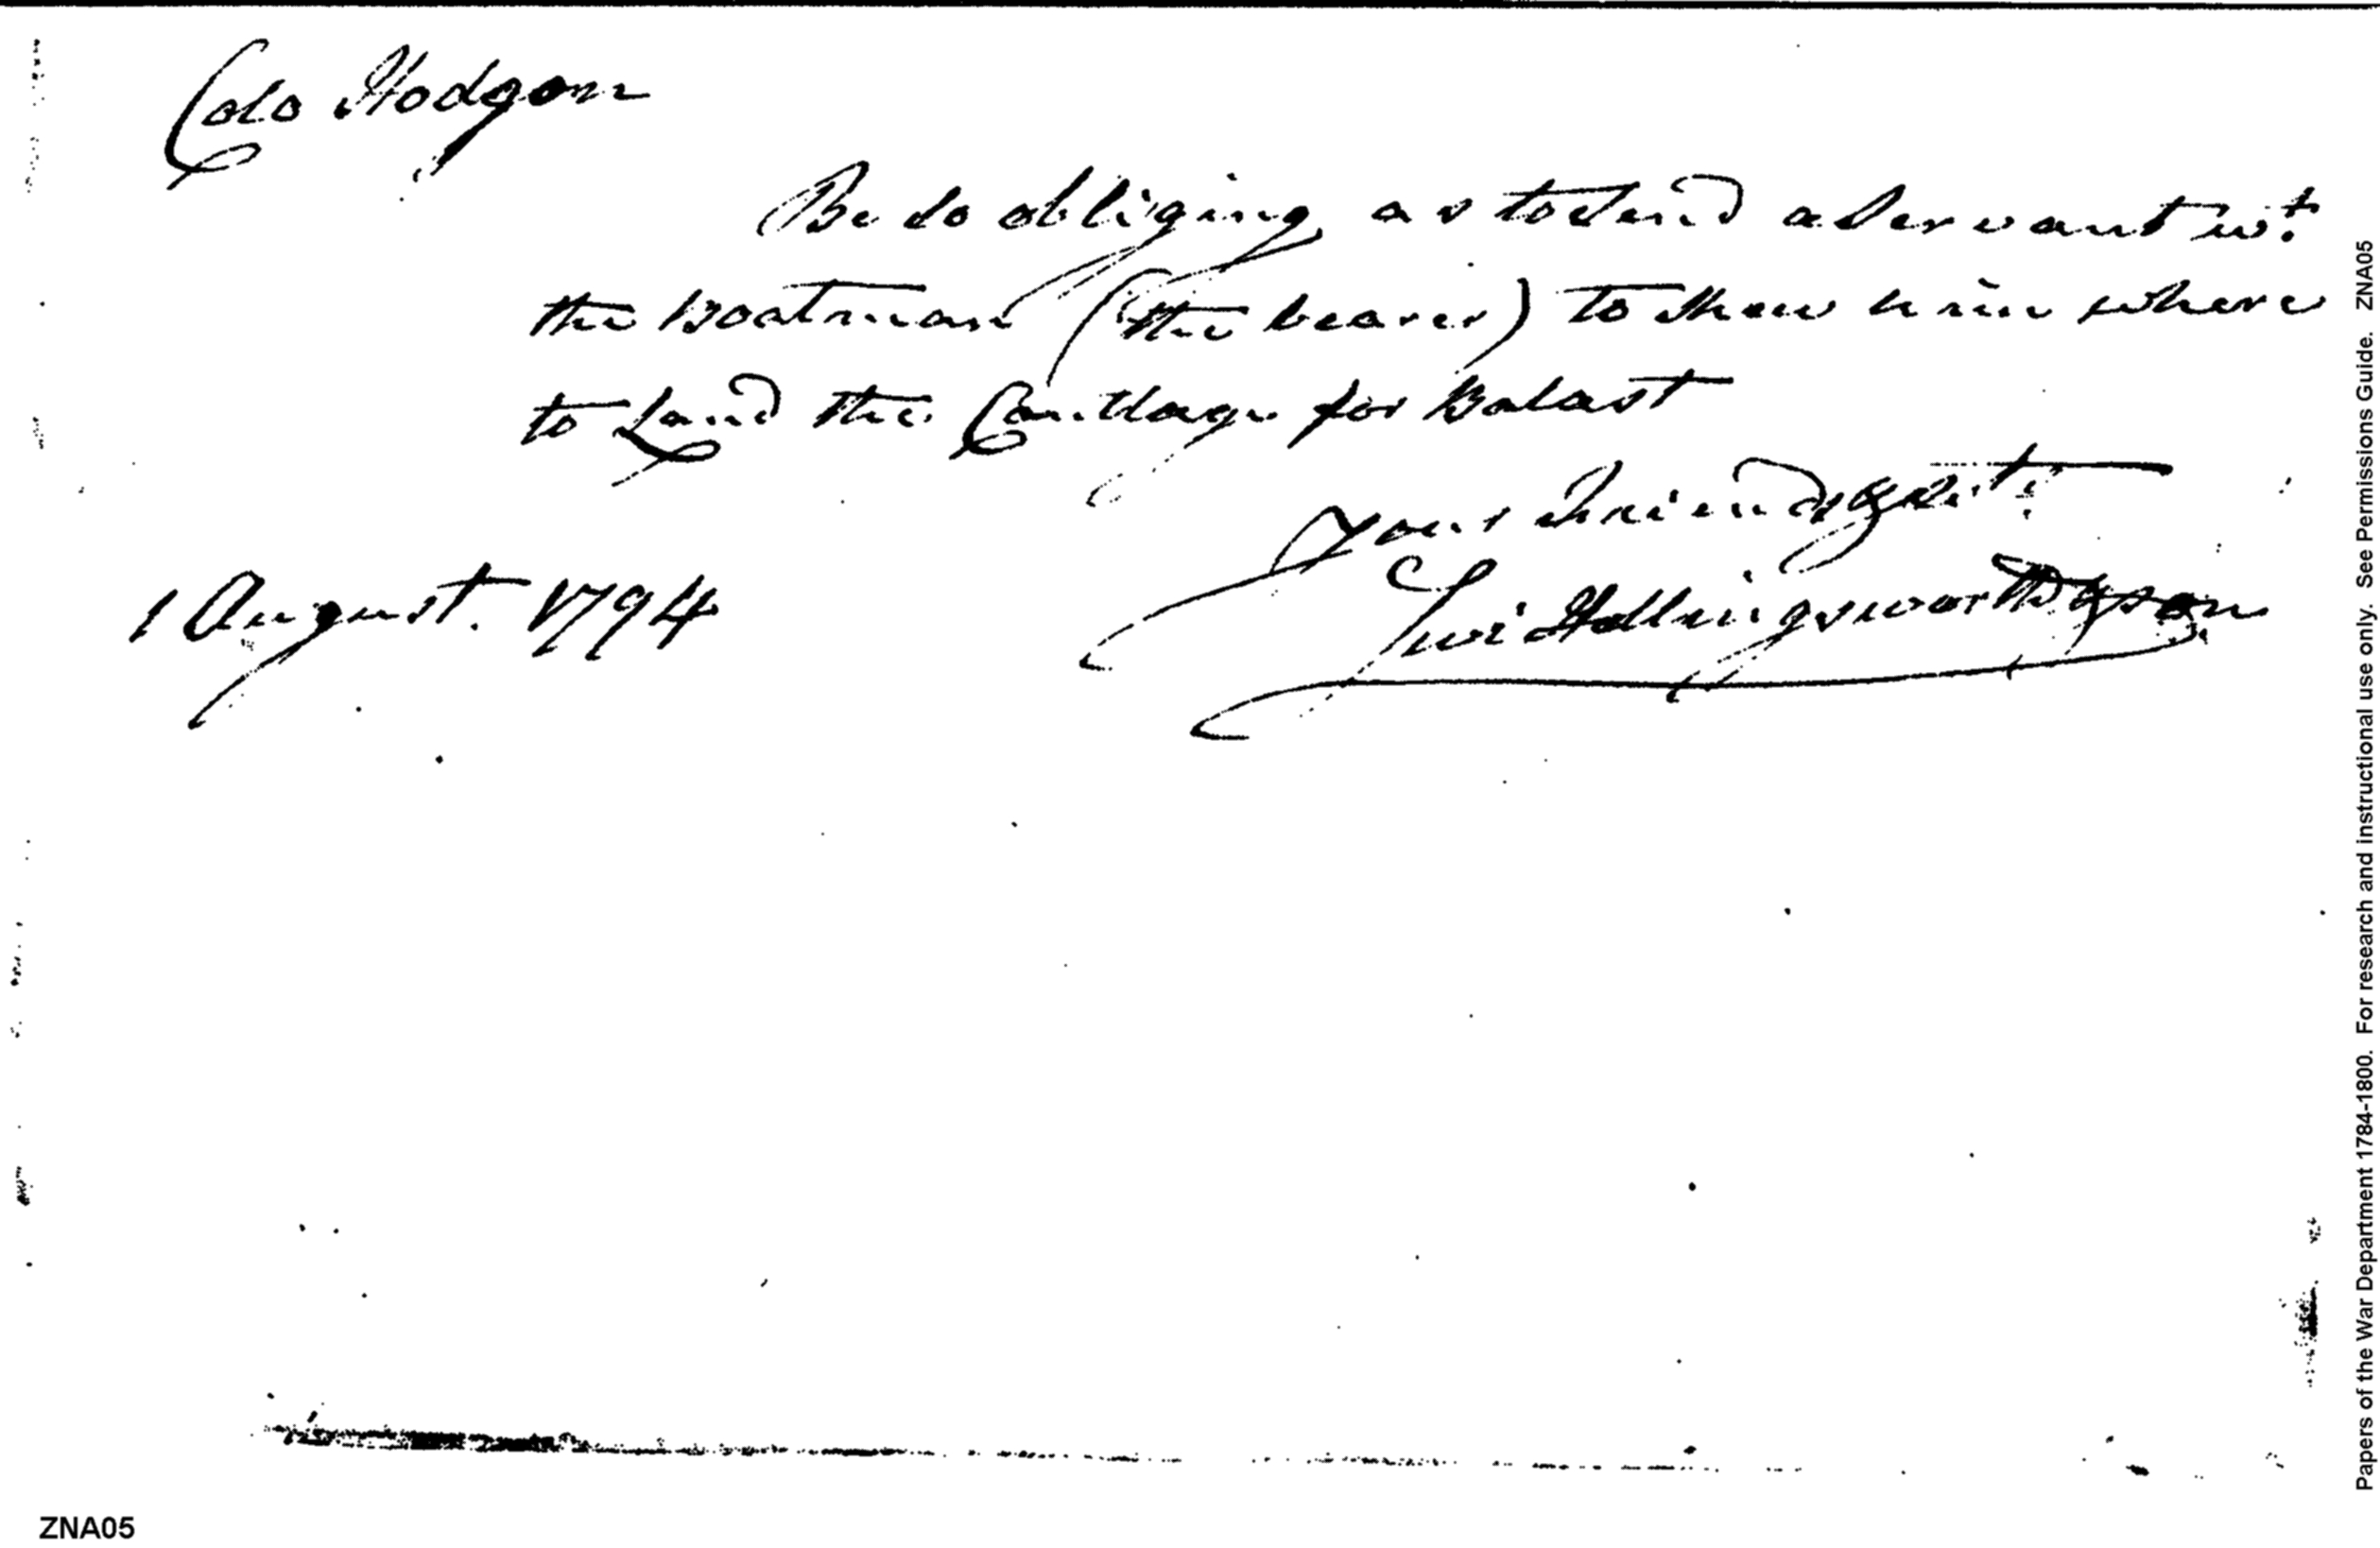 Colo Hodgon
Be so obliging as to send a servant wt.
the Boatman (the bearer) to shew him where
to Land the Cordage for Balast
Your Friends
1 August. 1794
Levi Hollingsworth & son
ZNA05
Papers of the War Department 1784-1800. For research and instructional use only. See Permissions Guide. ZNA05